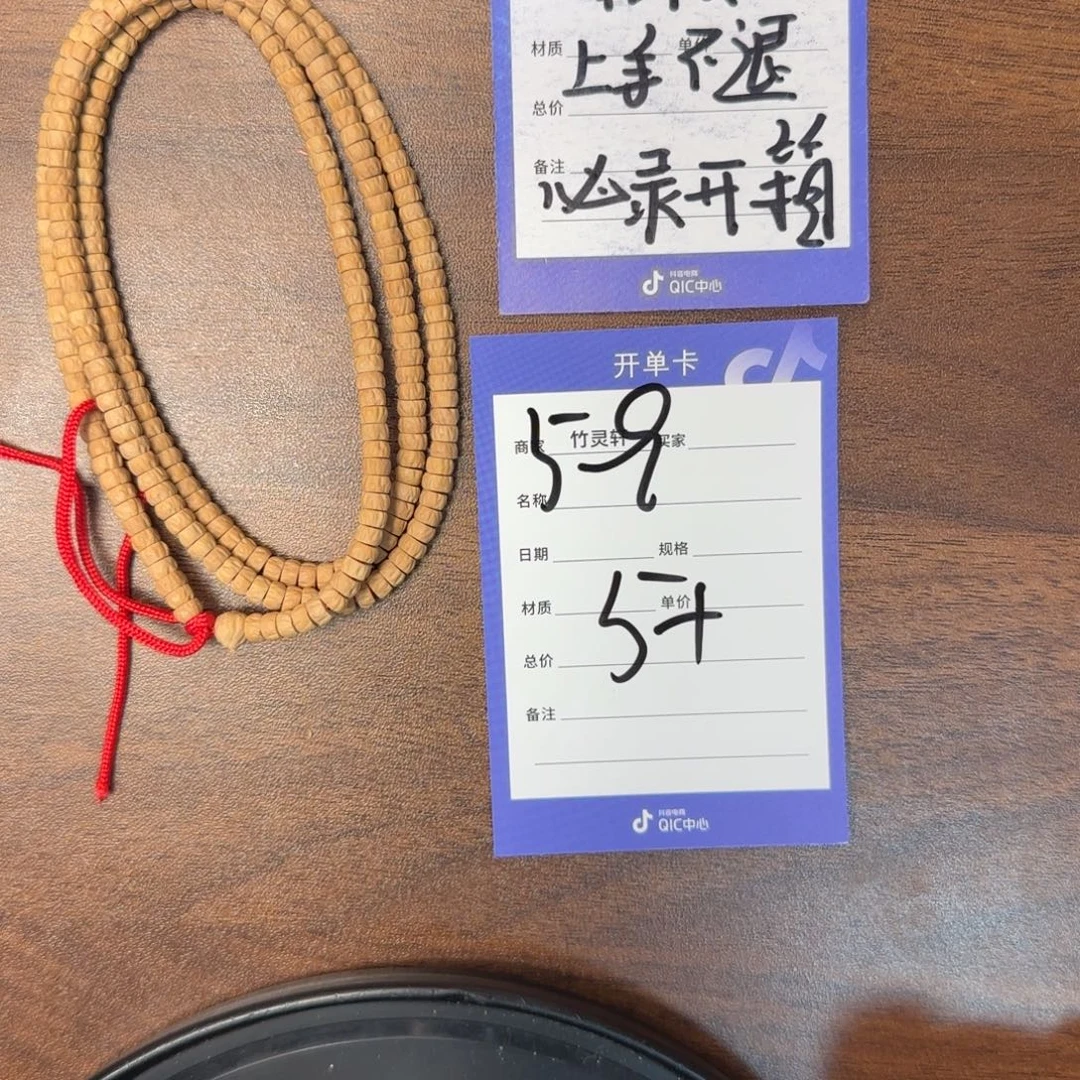 材质 单价
上手不退
总价
备注
必录开箱
抖音电商
QIC中心
开单卡
59
商家 竹灵轩 买家
名称
日期 规格
材质 单价
5+
总价
备注
抖音电商
QIC中心